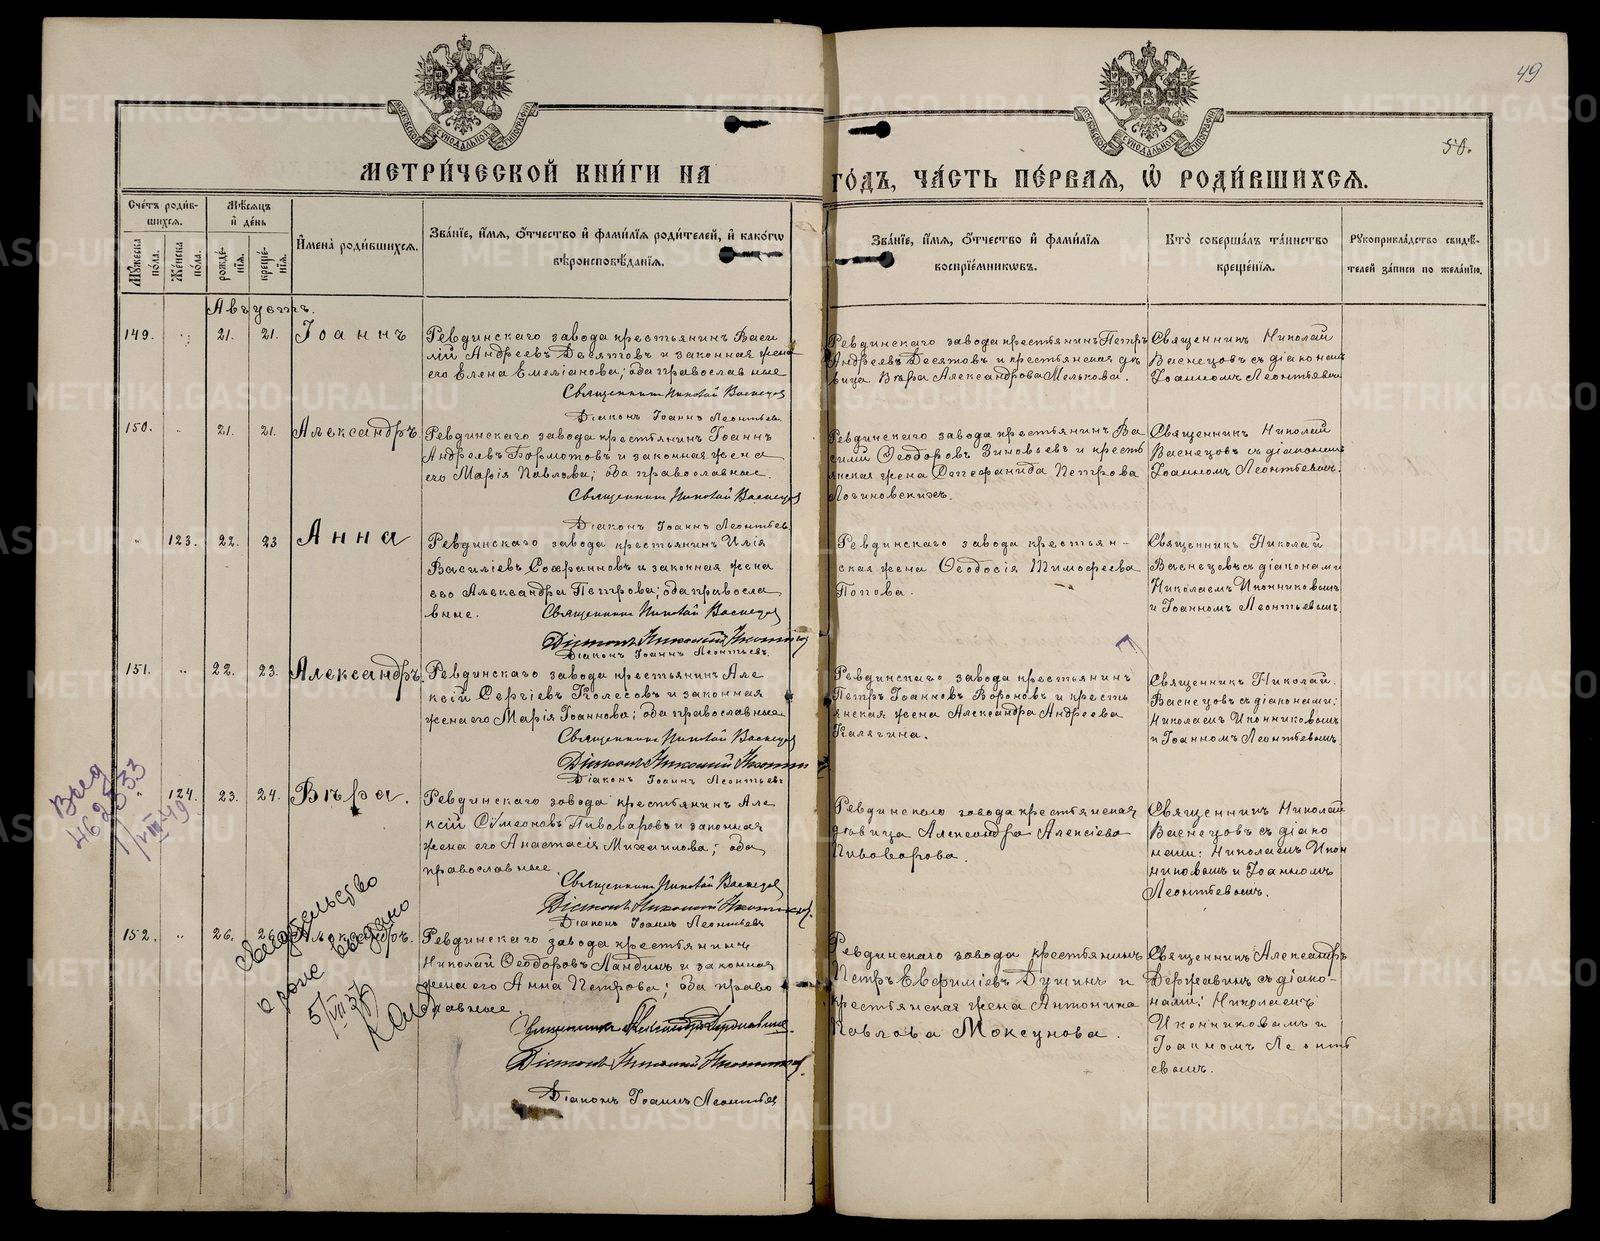 49
50.
МЕТРИ́ЧЕСКОЙ КНИ́ГИ НА ГО́ДЪ, ЧА́СТЬ ПЕ́РВАЯ, Ѡ РОДИ́ВШИХСЯ.
Сче́тъ роди́в-
шихся.
Мѣ́сяцъ
и҆ де́нь
Мꙋ́жеска по́ла.
Же́нска по́ла.
рожде́-
нїя.
креще́-
нїя.
И҆мена̀ роди́вшихся.
Зва́нїе, и҆́мя, ѻ҆́тчество и҆ фами́лїя роди́телей, и҆ како́гѡ
вѣроисповѣ́данїя.
Зва́нїе, и҆́мя, ѻ҆́тчество и҆ фами́лїя
воспрїе́мникѡвъ.
Кто̀ соверша́лъ та́инство
креще́нїя.
Рꙋкоприкла́дство свидѣ́-
телей за́писи по жела́нїю.
Августъ.
149. " 21. 21. Іоаннъ
Ревдинскаго завода крестьянинъ Васи
лій Андреевъ Десятовъ и законная жена
его Елена Емеліанова; оба православные
Священникъ Николай Васнецовъ
Діаконъ Іоаннъ Леонтьевъ
Ревдинскаго завода крестьянинъ Петръ
Андреевъ Десятовъ и крестьянская дѣ
вица Вѣра Александрова Мелькова.
Священникъ Николай
Васнецовъ съ діакономъ
Іоанномъ Леонтьевымъ
150. " 21. 21. Александръ.
Ревдинскаго завода крестьянинъ Іоаннъ
Андреевъ Бормотовъ и законная жена
его Марія Павлова; оба православные.
Священникъ Николай Васнецовъ
Діаконъ Іоаннъ Леонтьев
Ревдинскаго завода крестьянинъ Ва
силій Ѳеодоровъ Зиновьевъ и кресть
янская жена Стефанида Петрова
Логиновскихъ.
Священникъ Николай
Васнецовъ съ діакономъ
Іоанномъ Леонтьевымъ.
" 123. 22. 23 Анна
Ревдинскаго завода крестьянинъ Илія
Василіевъ Софриновъ и законная жена
его Александра Петрова; оба правосла
вные.
Священникъ Николай Васнецов
Діаконъ Николай Иконников
Діаконъ Іоаннъ Леонтьевъ.
Ревдинскаго завода крестьян-
ская жена Ѳеодосія Тимофеева
Попова.
Священникъ Николай
Васнецовъ съ діаконами
Николаемъ Иконниковымъ
и Іоанномъ Леонтьевымъ.
151. " 22. 23. Александръ.
Ревдинскаго завода крестьянинъ Але
ксій Сергіевъ Колесовъ и законная
жена его Марія Іоаннова; оба православные
Священникъ Николай Васнецов
Діаконъ Николай Иконников
Діаконъ Іоаннъ Леонтьевъ
Ревдинскаго завода крестьянинъ
Петръ Іоанновъ Вороновъ и кресть
янская жена Александра Андреева
Калягина.
Священникъ Николай
Васнецовъ съ діаконами:
Николаемъ Иконниковымъ
и Іоанномъ Леонтьевымъ.
" 124. 23. 24. Вѣра.
Ревдинскаго завода крестьянинъ Але
ксій Сѵмеоновъ Пивоваровъ и законная
жена его Анастасія Михаилова; оба
православные.
Священникъ Николай Васнецов
Діаконъ Николай Иконников.
Діаконъ Іоаннъ Леонтьевъ
Ревдинскаго завода крестьянская
дѣвица Александра Алексіева
Пивоварова.
Священникъ Николай
Васнецовъ съ діако
нами: Николаемъ Икон
никовымъ и Іоанномъ
Леонтьевымъ.
462533
VIII-49
152. " 26. 26. Александръ.
Ревдинскаго завода крестьянинъ
Николай Ѳеодоровъ Ландинъ и законная
жена его Анна Петрова; оба право
славные
Священникъ Александръ Державинъ.
Діаконъ Николай Иконников.
Діаконъ Іоаннъ Леонтьев
Ревдинскаго завода крестьянинъ
Петръ Евфиміевъ Душинъ и
крестьянская жена Антонина
Павлова Моксунова.
Священникъ Александръ
Державинъ съ діако-
нами: Николаемъ
Иконниковымъ и
Іоанномъ Леонть
евымъ.
свидетельство
о рожд выдано
5/VII 37
METRIKI.GASO-URAL.RU